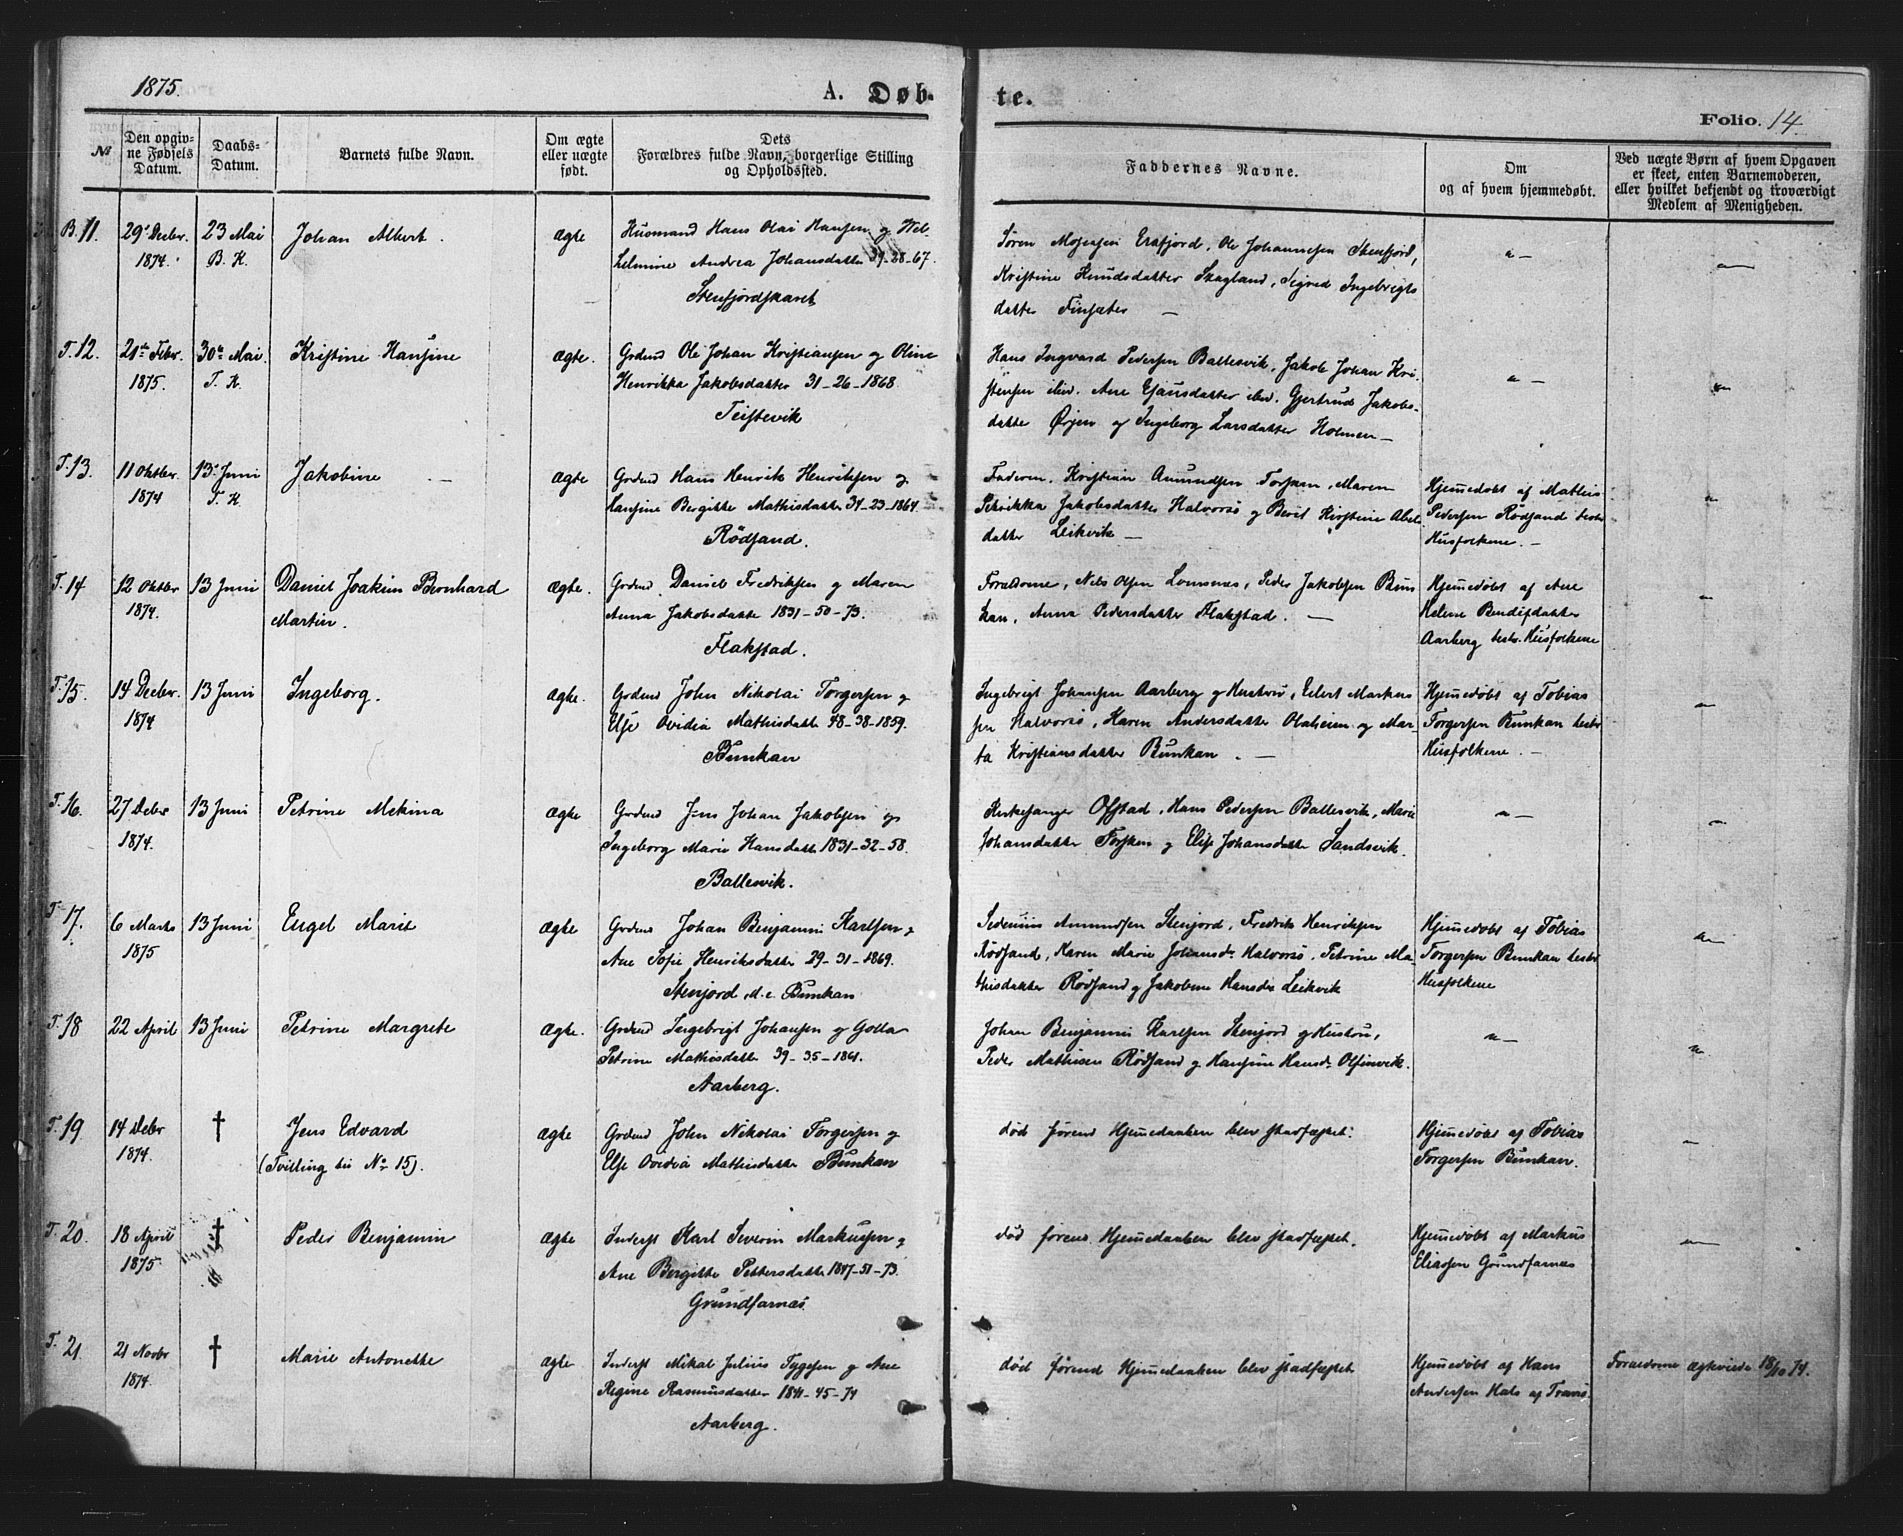 1875.
A. Døb-
te.
Folio. 14.
№
Den opgiv-
ne Fødsels
Datum.
Daabs-
Datum.
Barnets fulde Navn.
Om ægte
eller uægte
født.
Dets
Forældres fulde Navn, borgerlige Stilling
og Opholdssted.
Faddernes Navne.
Om
og af hvem hjemmedøbt.
Ved uægte Børn af hvem Opgaven
er skeet, enten Barnemoderen,
eller hvilket bekjendt og troværdigt
Medlem af Menigheden.
B. 11.
29' Decbr.
1874.
23 Mai
B. K.
Johan Albert.
ægte
Husmand Hans Olai Hansen og Wel-
helmine Andrea Johansdatter 39-28-67.
Stenfjordskaret
Søren Mogensen Ersfjord, Ole Johannesen Stenfjord,
Kristine Knudsdatter Skagland, Sigrid Ingebrigts
datter Finsæter —
"—
"—
T. 12.
21de Febr.
1875.
30te Mai
T. K.
Kristine Hansine
ægte.
Grdmd Ole Johan Kristiansen og Oline
Henrikka Jakobsdatter 31-26-1868
Teistevik
Hans Ingvard Pedersen Ballesvik, Jakob Johan Kri-
stensen ibid. Ane Esausdatter ibid. Gjertrud Jakobs-
datter Ørjen og Ingeborg Larsdatter Holmen —
"—
"—
T. 13.
11 Oktbr
1874
13' Juni
T. K.
Jakobine —
ægte
Grdmd Hans Henrik Henriksen og
Hansine Bergitte Mathisdatter 34-23-1864.
Rödsand.
Faderen, Kristian Amundsen Torsken, Maren
Petrikka Jakobsdatter Halvorsö og Berit Kirstine Abel
datter Leikvik —
Hjemmedøbt af Mathis
Pedersen Rödsand testr
Husfolkene. —
"—
T. 14
12 Oktbr
1874.
13 Juni
Daniel Joakim Bernhard
Martin.
ægte.
Grdmd Daniel Fredriksen og Maren
Anna Jakobsdatter 1831-50-73.
Flakstad.
Forældrene, Nels Olsen Lomsnes, Peder Jakobsen Bun
kan, Anna Pedersdatter Flakstad. —
Hjemmedøbt af Ane
Helene Bendixdatter
Aarberg testr. Husfolkene
"—
T. 15.
14 Decbr.
1874
13 Juni
Ingeborg.
ægte.
Grdmd John Nikolai Torgersen og
Else Ovidia Mathisdatter 48-38-1859.
Bunkan
Ingebrigt Johansen Aarberg og Hustru, Eilert Markus
sen Halvorsö, Karen Andersdatter Olaheim og Mar-
ta Kristiansdatter Bunkan. —
Hjemmedøbt af Tobias
Torgersen Bunkan testr
Husfolkene. —
"—
T. 16.
27 Debr
1874.
13 Juni
Petrine Mekina
ægte
Grdmd Jens Johan Jakobsen og
Ingeborg Marie Hansdatter 1831-32-58.
Ballesvik.
Kirkesanger Ofstad, Hans Pedersen Ballesvik, Marie
Johansdatter Torsken og Elise Johansdatter Sandsvik.
"—
"—
T. 17.
6 Marts
1875
13 Juni
Engel Marie
ægte
Grdmd Johan Benjamin Karlsen og
Ane Sofie Henriksdatter 29-31-1869.
Stenjord, d. e. Bunkan
Amundsen Stenjord, Fredrik Henriksen
Rödsand, Karen Marie Johansdr Halvorsö, Petrine Ma-
thisdatter Rödsand og Jakobine Hansdr Leikvik
Hjemmedøbt af Tobias
Torgersen Bunkan testr
Husfolkene
"—
T. 18
22 April
13 Juni
Petrine Margrete
ægte.
Grdmd Ingebrigt Johansen og Golla
Petrine Mathisdatter 39-35-1861.
Aarberg.
Johan Benjamin Karlsen Stenjord og Hustru,
Peder Mathisen Rödsand og Hansine Hansdr Olfinvik.
"—
"—
T. 19
14 Debr
1874.
†
Jens Edvard
(Tvilling til No 15).
ægte
Grdmd John Nikolai Torgersen og
Else Ovidia Mathisdatter Bunkan
død førend Hjemmedaaben blev stadfæstet.
Hjemmedøbt af Tobias
Torgersen Bunkan.
"—
T. 20.
18 April
1875.
†
Peder Benjamin
ægte
Inderst Karl Severin Markussen og
Ane Bergitte Pettersdatter 1847-51-73.
Grundfarnæs
død førend Hjemmedaaben blev stadfæstet.
Hjemmedøbt af Markus
Eliassen Grundfarnæs
"—
T. 21.
21 Novbr
1874.
†
Marie Antonette
ægte
Inderst Mikal Julius Tygesen og Ane
Regine Rasmusdatter 1841-45-74
Aarberg.
død førend Hjemmedaaben blev stadfæstet
Hjemmedøbt af Hans
Andersen Hals af Tranö.
Forældrene ægteviede 18/10 74.